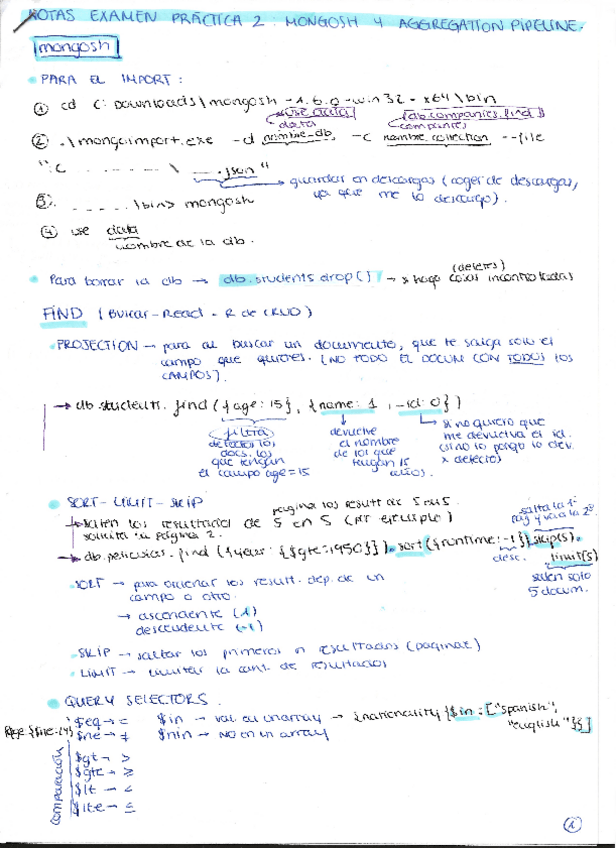 NOTAS EXAMEN PRÁCTICA 2: MONGOSH Y AGGREGATION PIPELINE.
mongosh
• PARA EL IMPORT:
① cd C:Downloads\mongosh-1.6.0-win32-x64\bin
use data db.companies.find()
data companies
② .\mongoimport.exe -d nombre-db -c nombre collection --file
":C ...... \ ......json"
→ guardar en descargas (coger de descargas,
ya que me lo descargo).
③. ..... \bin> mongosh
④ use data
nombre de la db.
• Para borrar la db → db.students.drop() → x hago cosas incontroladas
(deletes)
FIND (Buscar - Read - R de CRUD)
• PROJECTION → para al buscar un documento, que te salga solo el
campo que quieres. [NO TODO EL DOCUM CON TODOS LOS
CAMPOS].
→ db.students.find({age: 15}, {name: 1, _id: 0})
filtra
detector los
docs. los
que tengan
el campo age=15
devuelve
el nombre
de los que
tengan 15
años.
si no quiero que
me devuelva el id.
(si no lo pongo lo dev.
x defecto)
• SORT-LIMIT-SKIP
pagina los result de 5 en 5.
→ salen los resultados de 5 en 5 (NT ejemplo)
solicita la página 2.
salta la 1ª
pag y va a la 2ª
→ db.peliculas.find({year: {$gte:1950}}).sort({runtime:-1}).skip(5).
desc. limit(5)
salen solo
5 docum.
• SORT → para ordenar los result. dep. de un
campo o otro.
→ ascendente (1)
descendente (-1)
• SKIP → saltar los primeros n resultados (paginar)
• LIMIT → limitar la cant. de resultados
• QUERY SELECTORS.
comparación
$eq → = $in → val en un array → {nationality {$in: ["spanish",
"english"]}}
$ne → ≠ $nin → NO en un array
$gt → >
$gte → ≥
$lt → <
$lte → ≤
1